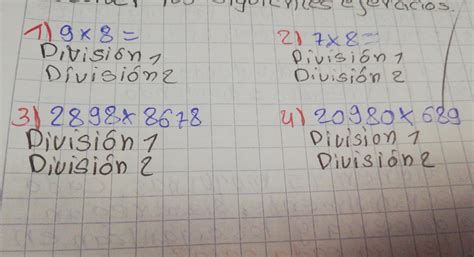 los siguientes ejercicios.
1) 9 x 8 =
División 1
División 2
2) 7 x 8 =
División 1
División 2
3) 2898 x 8678
División 1
División 2
4) 20980 x 689
Division 1
División 2